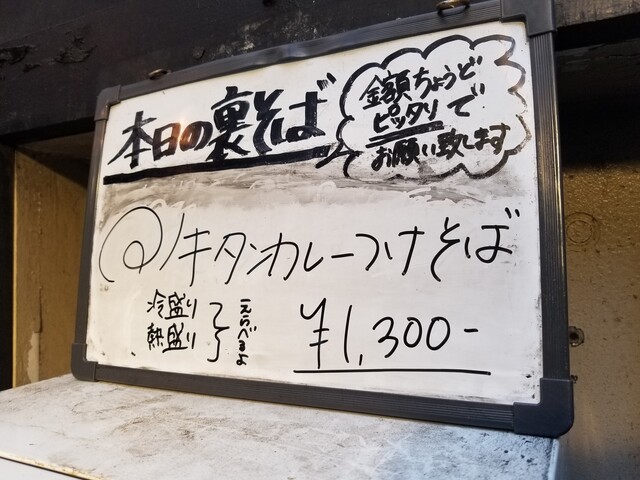 本日の裏そば
金額ちょうど
ピッタリで
お願い致します
@ノキタンカレーつけそば
冷盛り
熱盛り
えらべるよ
¥1,300-